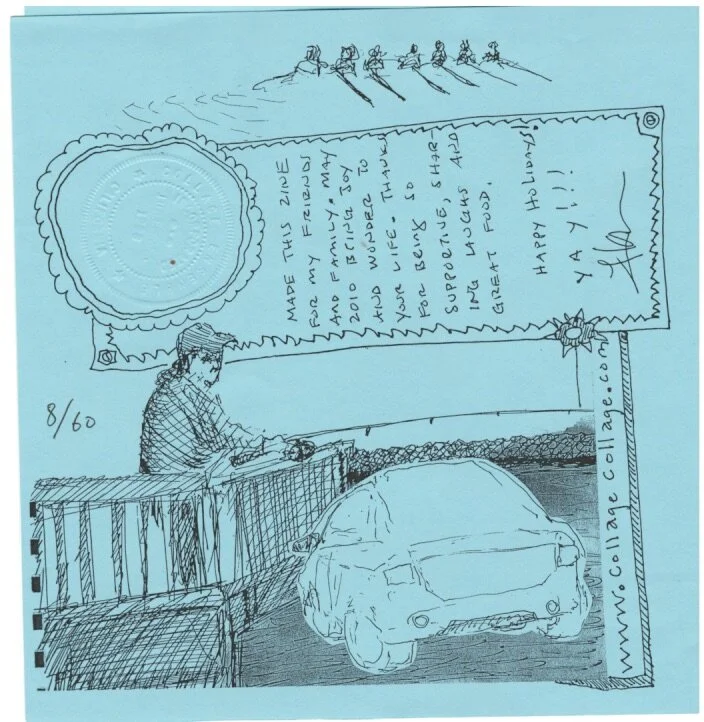 MADE THIS ZINE
FOR MY FRIENDS
AND FAMILY. MAY
2010 BRING JOY
AND WONDER TO
YOUR LIFE. THANKS
FOR BEING SO
SUPPORTIVE, SHAR-
ING LAUGHS AND
GREAT FOOD.
HAPPY HOLIDAYS!
YAY!!!
8/60
www.collagecollage.com